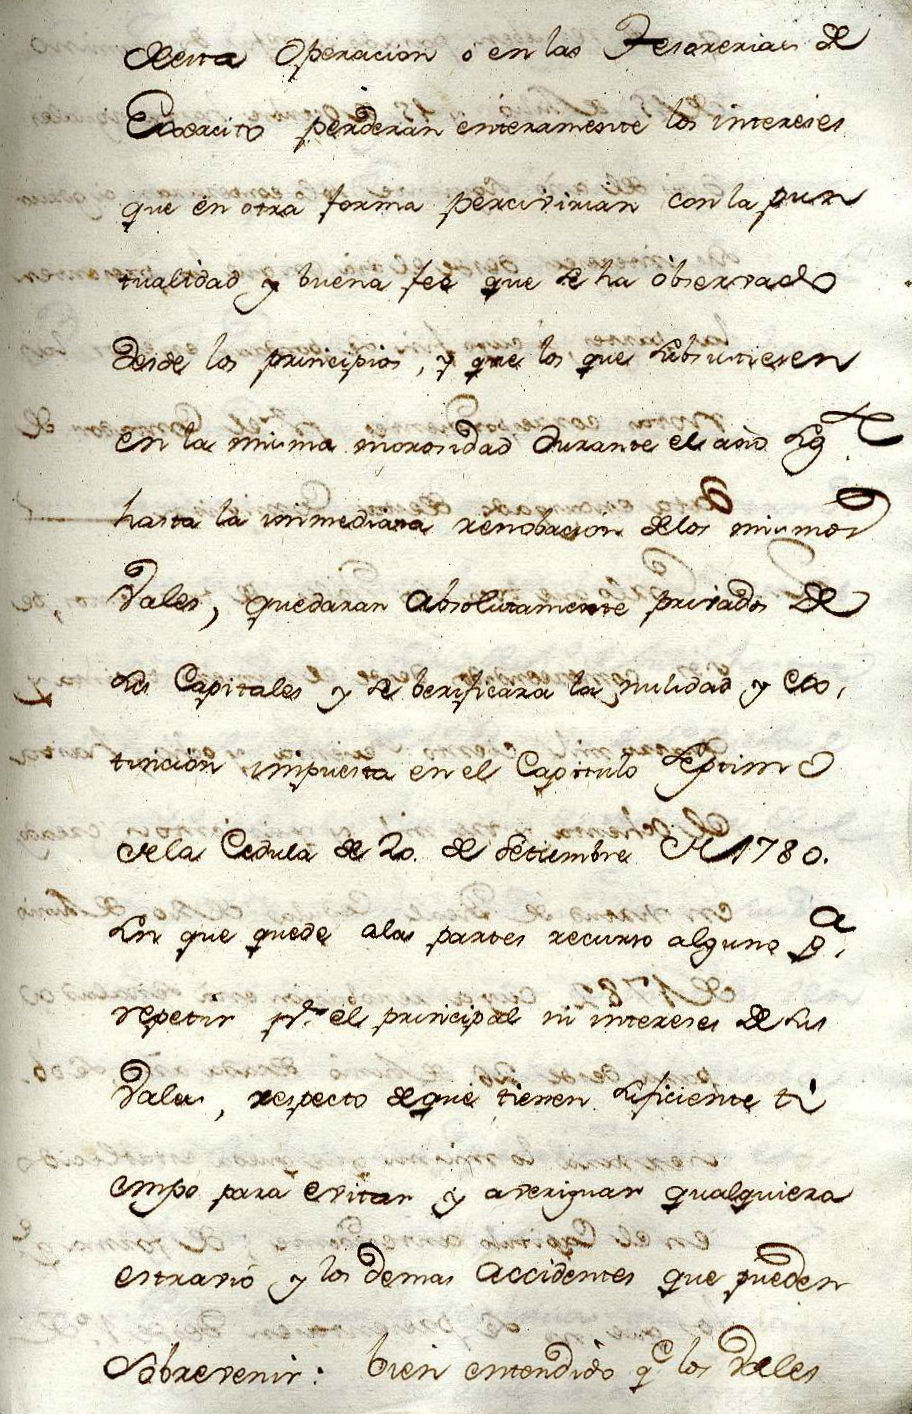 desta Operacion ó en las Tesorerias de
Exercito perderán enteramente los intereses
que en otra forma percivirian con la pun
tualidad y buena feé que se ha observado
desde los principios, y que los que subsistiesen
en la misma morosidad durante el año sig.te
hasta la inmediata renobacion delos mismos
Vales, quedaran absolutamente privados de
sus Capitales y se berificara la nulidad y Es-
tincion impuesta en el Capitulo Septimo
dela Cedula de 20. de Setiembre de 1780.
sin que quede alas partes recurso alguno p.a
repetir p.r el principal ni intereses de sus
Vales, respecto deque tienen suficiente ti
empo para evitar y averiguar qualquiera
estravió y los demas accidentes que pueden
Sobrevenir: bien entendido q.e los Vales